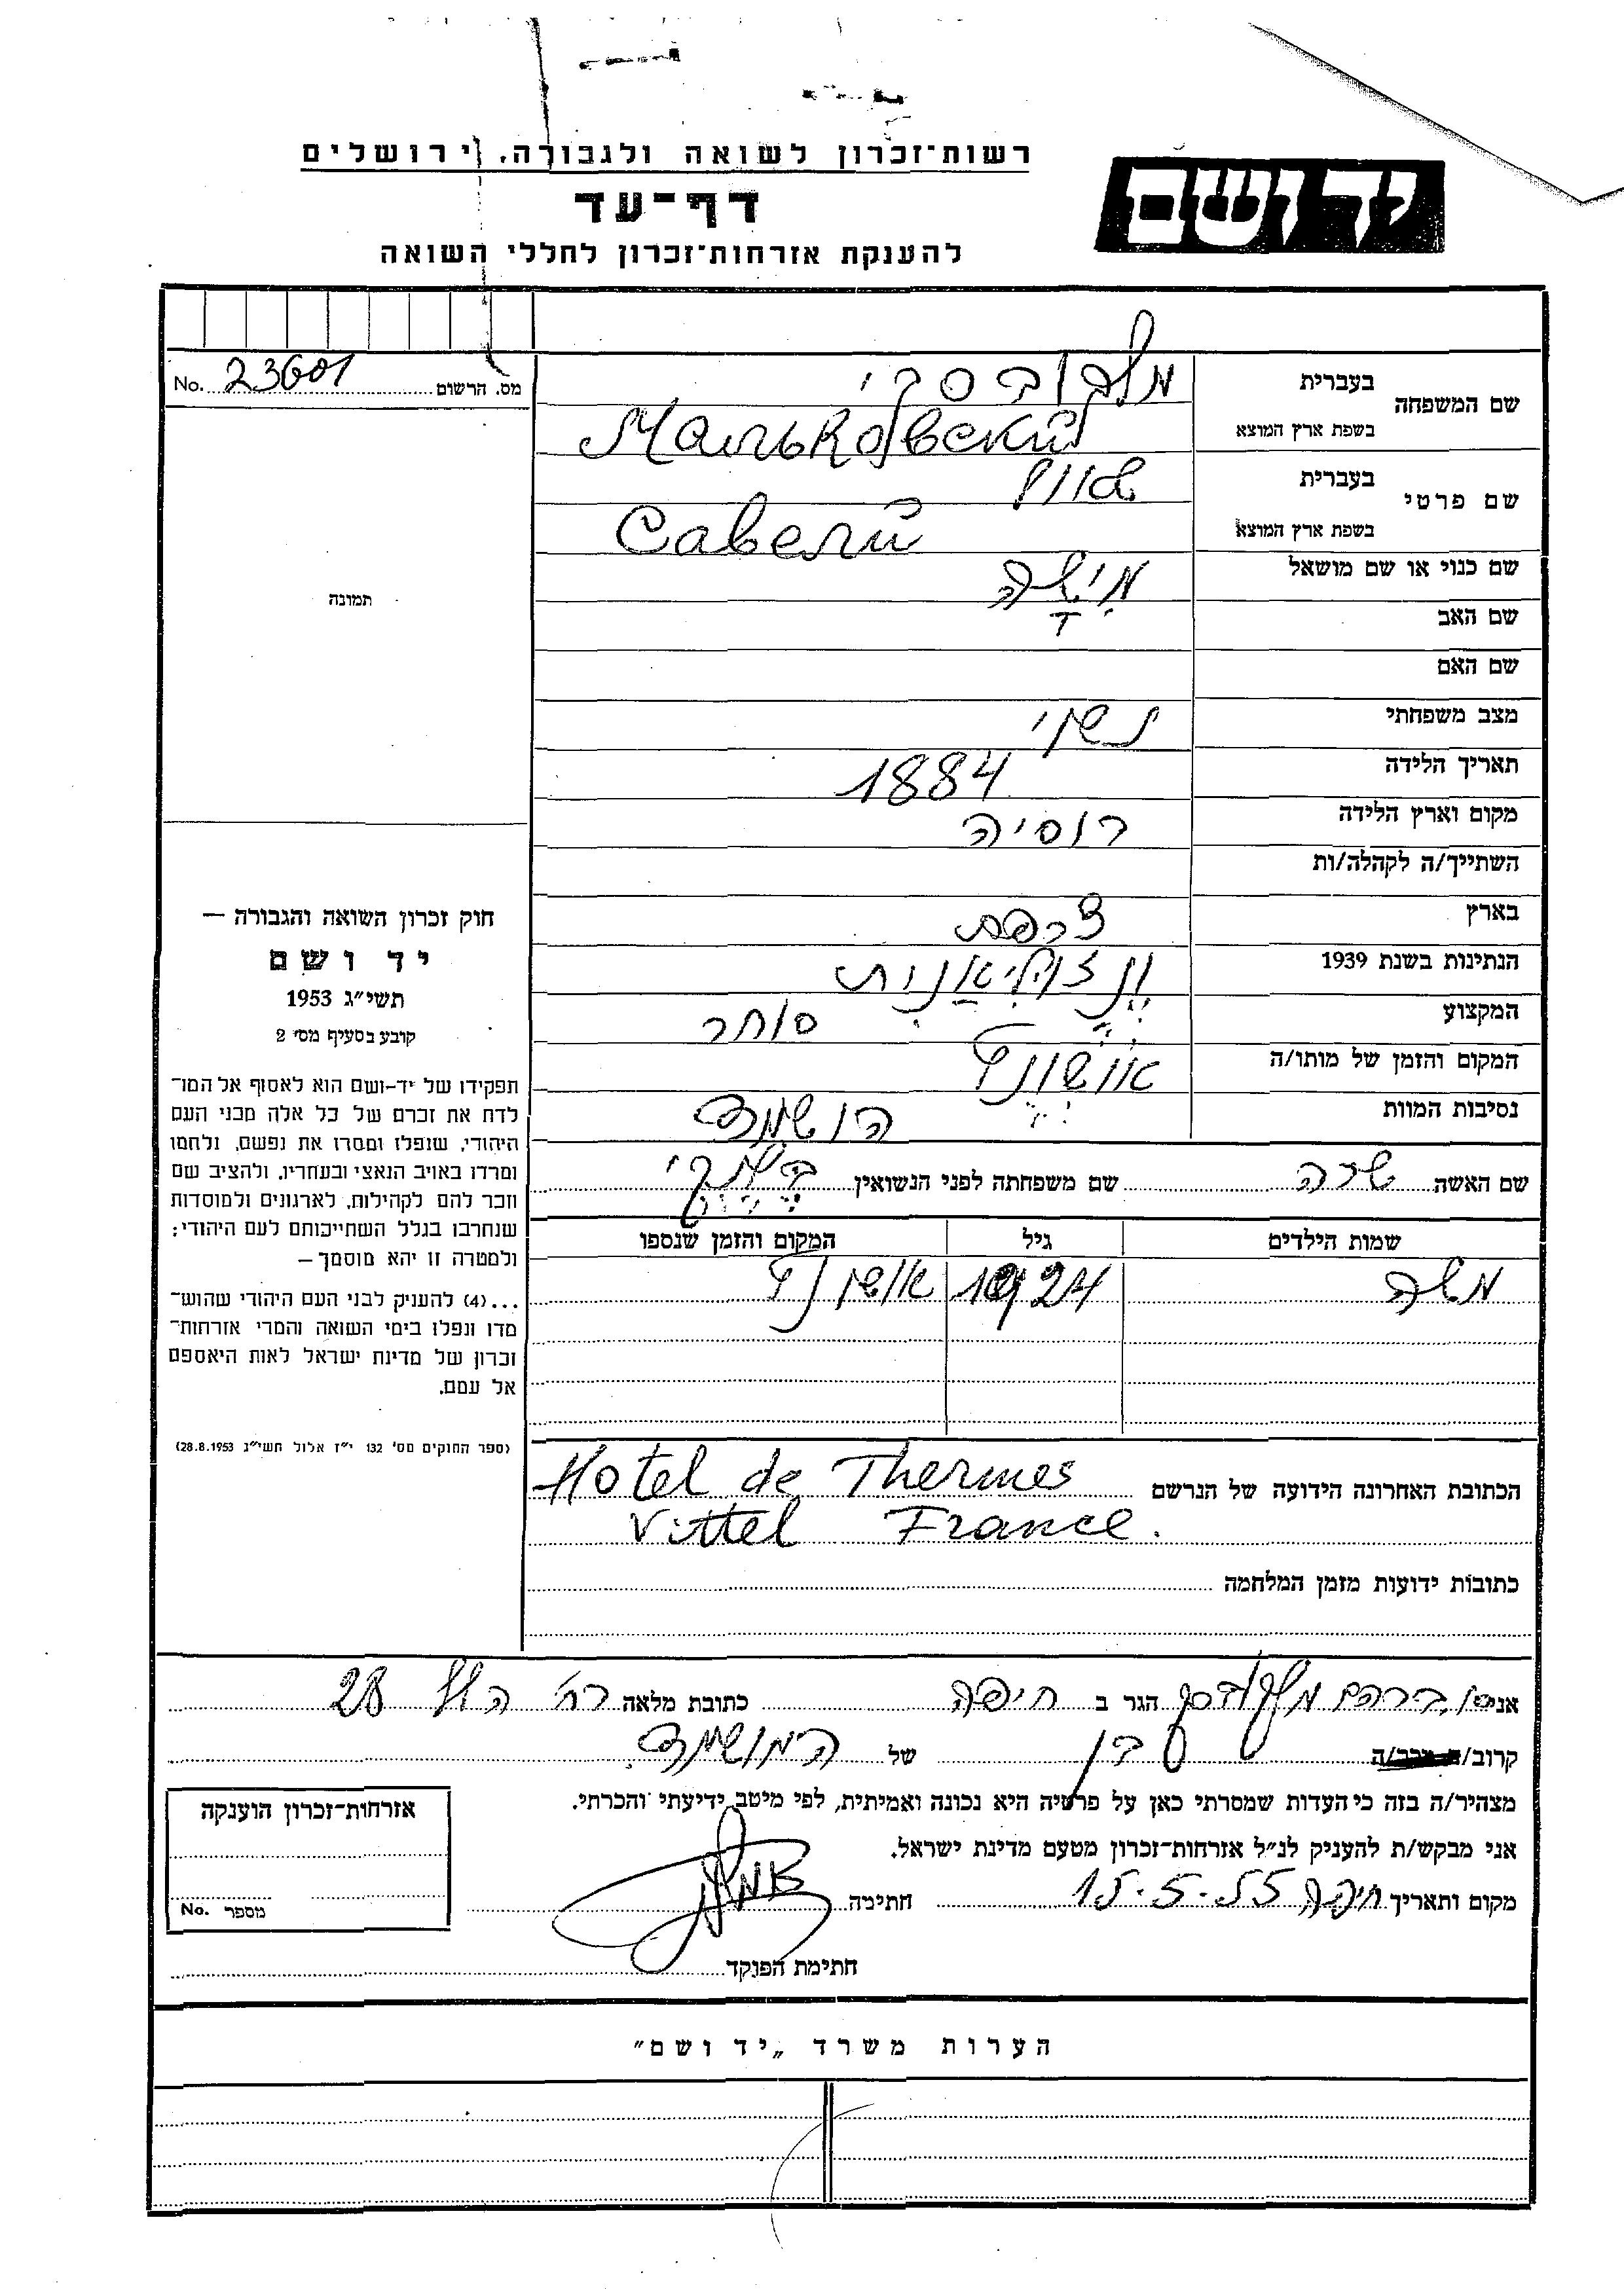 רשות־זכרון לשואה ולגבורה, ירושלים
יד ושם
דף־עד
להענקת אזרחות־זכרון לחללי השואה
מס. הרשום 23601 No.
תמונה
חוק זכרון השואה והגבורה —
יד ושם
תשי״ג 1953
קובע בסעיף מס׳ 2
תפקידו של יד-ושם הוא לאסוף אל המו־
לדת את זכרם של כל אלה מבני העם
היהודי, שנפלו ומסרו את נפשם, נלחמו
ומרדו באויב הנאצי ובעוזריו, ולהציב שם
וזכר להם לקהילות, לארגונים ולמוסדות
שנחרבו בגלל השתייכותם לעם היהודי;
ולמטרה זו יהא מוסמך—
...(4) להעניק לבני העם היהודי שהוש־
מדו ונפלו בימי השואה והמרי אזרחות־
זכרון של מדינת ישראל לאות היאספם
אל עמם.
(ספר החוקים מס׳ 132 י״ז אלול תשי״ג 28.8.1953)
שם המשפחה
בעברית
בשפת ארץ המוצא Мальковский
שם פרטי
בעברית שאול
בשפת ארץ המוצא Савелий
שם כנוי או שם מושאל
שם האב
שם האם
מצב משפחתי נשוי
תאריך הלידה 1884
מקום וארץ הלידה רוסיה
השתייך/ה לקהלה/ות
בארץ צרפת
הנתינות בשנת 1939
המקצוע סוחר
המקום והזמן של מותו/ה
נסיבות המוות הושמד
שם האשה שרה שם משפחתה לפני הנשואין
שמות הילדים גיל המקום והזמן שנספו
משה 1924
הכתובת האחרונה הידועה של הנרשם Hotel de Thermes
Vittel France.
כתובות ידועות מזמן המלחמה
אני הגר ב חיפה כתובת מלאה 28
קרוב/ה בן של המושמד
מצהיר/ה בזה כי העדות שמסרתי כאן על פרטיה היא נכונה ואמיתית, לפי מיטב ידיעתי והכרתי.
אני מבקש/ת להעניק לנ״ל אזרחות־זכרון מטעם מדינת ישראל.
מקום ותאריך חיפה 15.5.55 חתימה
חתימת הפוקד
אזרחות־זכרון הוענקה
מספר No.
הערות משרד „יד ושם״